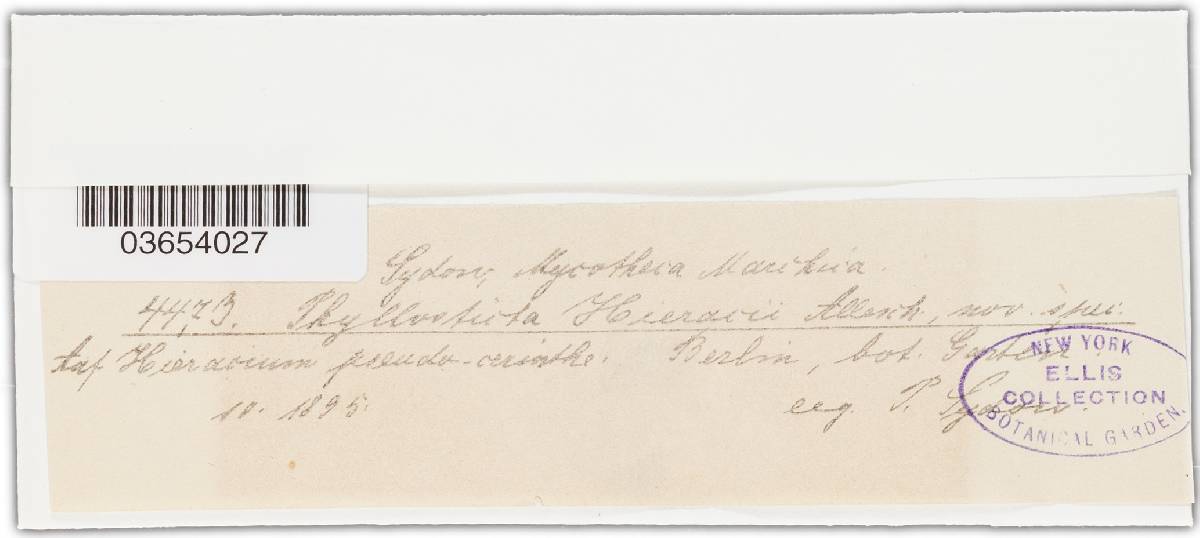 03654027
Sydow, Mycotheca Marchica.
4473. Phyllosticta Hieracii Allesch, nov. spec.
Auf Hieracium pseudo-cerinthe. Berlin, bot. Garten.
10. 1895. leg. P. Sydow.
NEW YORK
ELLIS
COLLECTION
BOTANICAL GARDEN.